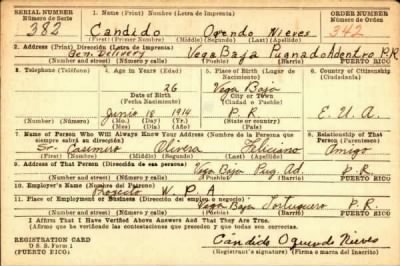 SERIAL NUMBER 1. Name (Print) Nombre (Letra de Imprenta) ORDER NUMBER
Número de Serie Número de Orden
382 Candido Oquendo Nieves 342
(First) (Primer Nombre) (Middle) (Segundo) (Last) (Apellido)
2. Address (Print) Dirección (Letra de Imprenta)
Gen. Delivery Vega Baja Pugnado Adentro P.R.
(Number and street) (Número y calle) (Town) (Pueblo) (Barrio) PUERTO RICO
3. Telephone (Teléfono) 4. Age in Years (Edad) 5. Place of Birth (Lugar de Nacimiento) 6. Country of Citizenship (Ciudadanía)
26 Vega Baja
Date of Birth (Town or County)
(Fecha Nacimiento) (Ciudad o Pueblo)
Junio 18 1914 P. R. E. U. A.
(Mo.) (Day) (Yr.) (State or country)
(Mo.) (Día) (Año) (Estado o país)
7. Name of Person Who Will Always Know Your Address (Nombre de la Persona que siempre sabrá su dirección) 8. Relationship of That Person (Parentesco)
Sr. Casimiro Olivera Feliciano Amigo
(Mr., Mrs., Miss) (First) (Middle) (Segundo) (Last) (Apellido)
9. Address of That Person (Dirección de esa persona)
Vega Baja Pug. Ad. P. R.
(Number and street) (Número y calle) (Town) (Pueblo) (Barrio) PUERTO RICO
10. Employer's Name (Nombre del Patrono)
W. P. A
11. Place of Employment or Business (Dirección del empleo o negocio)
Vega Baja P. R.
(Number and street) (Número y calle) (Town) (Pueblo) (Barrio) PUERTO RICO
I Affirm That I Have Verified Above Answers And That They Are True.
(Afirmo que he verificado las contestaciones que preceden y que todas son correctas.
REGISTRATION CARD
D. S. S. Form 1
(PUERTO RICO)
Cándido Oquendo Nieves
(Registrant's signature) (Firma o marca del inscrito)